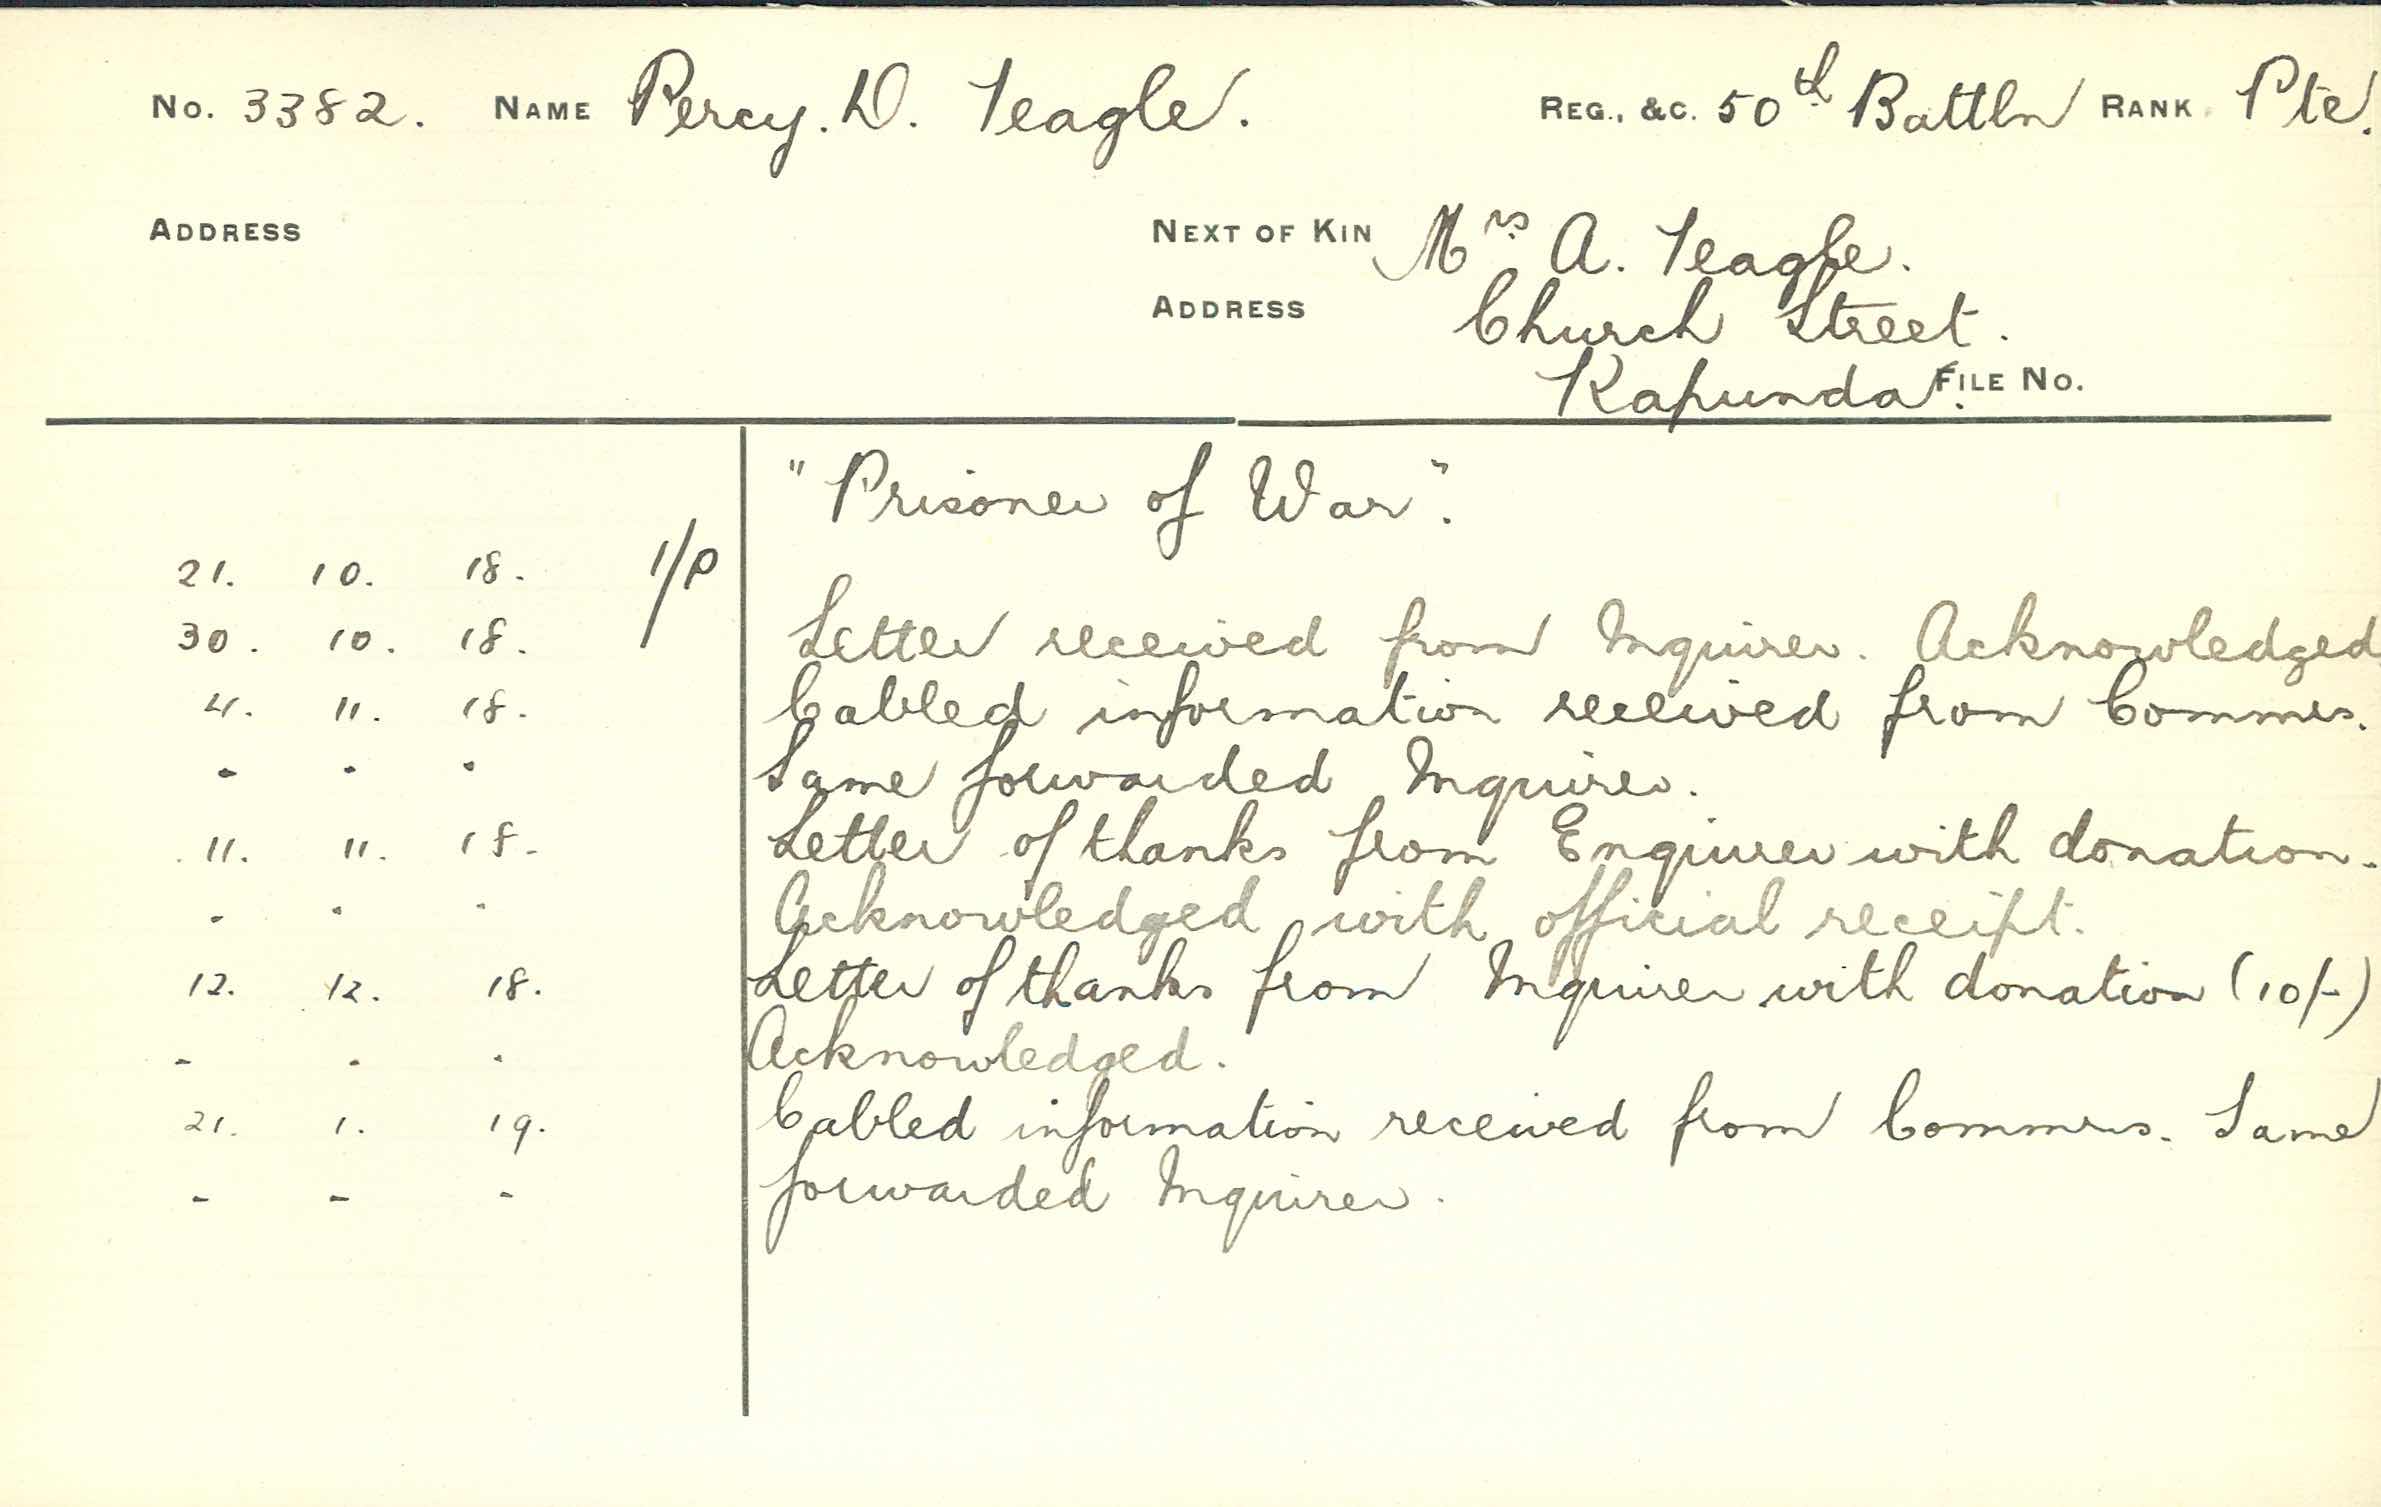 No. 3382. NAME Percy. D. Teagle. REG., &C. 50th Battln RANK Pte.
ADDRESS NEXT OF KIN Mrs A. Teagle.
ADDRESS Church Street.
Kapunda. FILE No.
"Prisoner of War".
21. 10. 18. 1/P
30. 10. 18. Letter received from Inquirer. Acknowledged
4. 11. 18. Cabled information received from Commrs.
- - - Same forwarded Inquirer.
11. 11. 18. Letter of thanks from Enquirer with donation.
- - - Acknowledged with official receipt.
12. 12. 18. Letter of thanks from Inquirer with donation (10/-)
- - - Acknowledged.
21. 1. 19. Cabled information received from Commrs. Same
- - - forwarded Inquirer.